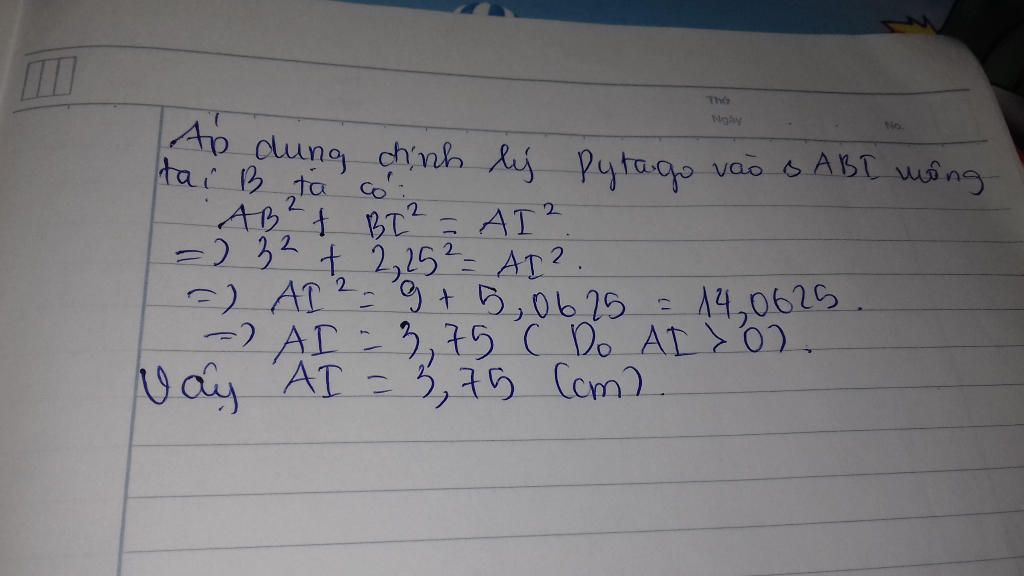 Thứ
Ngày
No.
Áp dụng định lý Pytago vào Δ ABI vuông
tại B ta có:
AB² + BI² = AI².
=) 3² + 2,25² = AI².
=) AI² = 9 + 5,0625 = 14,0625.
=) AI = 3,75 ( Do AI > 0).
Vậy AI = 3,75 (cm).